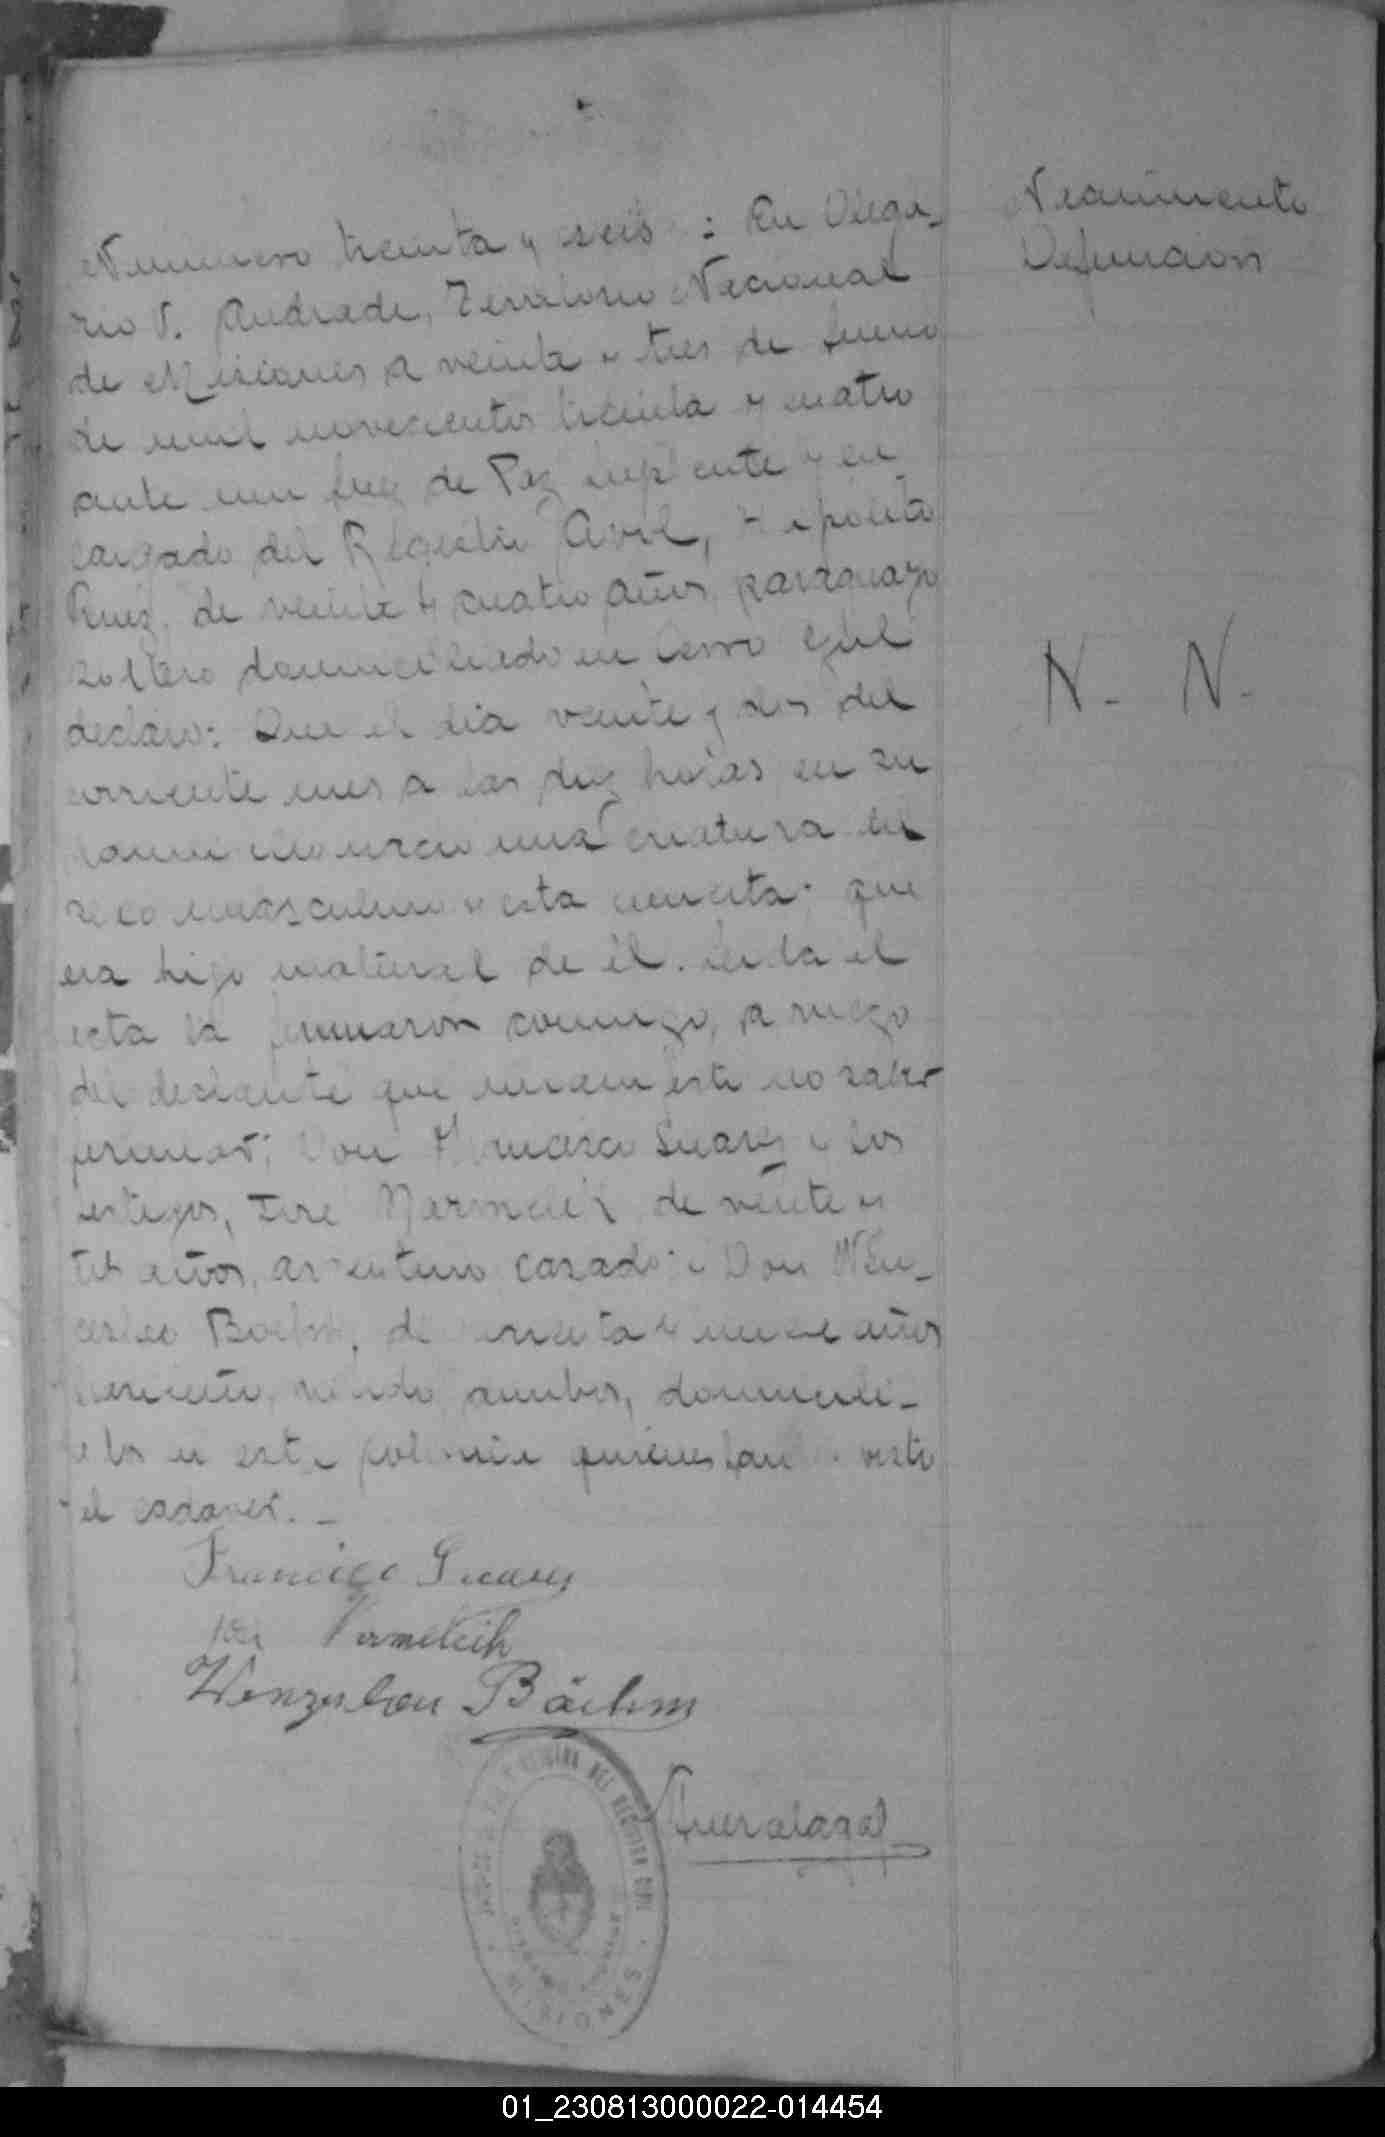 Nummero treinta y seis : En Olega-
rio V. Andrade, Territorio Nacional
de Misiones a veinte y tres de
de mil novecientos treinta y cuatro
ante mi Juez de Paz suplente y en
cargado del Registro Civil, Hipolito
Ruiz, de veinte y cuatro años, paraguayo
soltero domiciliado en Cerro
declaro: Que el dia veinte y dos del
corriente mes a las diez horas en su
domicilio nacio una criatura del
sexo masculino y esta muerta. que
era hijo natural de él. Leida el
acta la firmaron conmigo, a ruego
del declarante que manifesto no saber
firmar, Don Francisco Suarez y los
testigos, de veinte y
tres años, argentino casado y Don Wen-
ceslao de y nueve años
ambos, domicili-
ados en esta colonia quienes han visto
el cadaver. -
Francisco Suarez
Wenzeslau Böehm
OFICINA DEL REGISTRO CIVIL
MISIONES
Nacimiento
Defuncion
N. N.
01_230813000022-014454